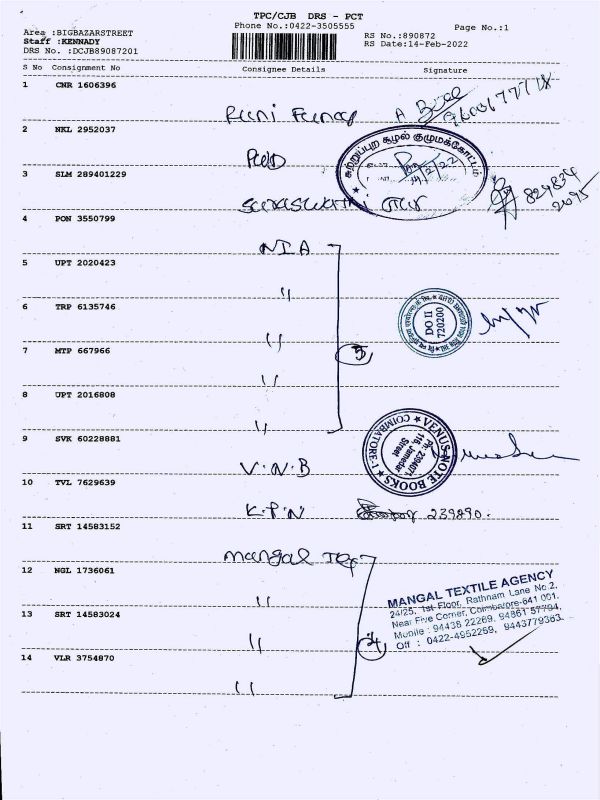 TPC/CJB DRS - PCT
Phone No.:0422-3505555
Page No.:1
Area :BIGBAZARSTREET
Staff :KENNADY
DRS No. :DCJB89087201
RS No.:890872
RS Date:14-Feb-2022
S No Consignment No Consignee Details Signature
1 CNR 1606396
9600677718
2 NKL 2952037
PWD
சுற்றுப்புற சூழல் குழுமக்கோட்டம்
14/2/22
3 SLM 289401229
4 PON 3550799
NIA
5 UPT 2020423
"
6 TRP 6135746
"
DO II
720200
7 MTP 667966
"
5
8 UPT 2016808
"
9 SVK 60228881
V.N.B
VENUS NOTE BOOKS
COIMBATORE-1
116, Jamedar
Street
10 TVL 7629639
K.P.N 239890.
11 SRT 14583152
Mangal Tex
12 NGL 1736061
"
MANGAL TEXTILE AGENCY
24/25, 1st Floor, Rathnam Lane No.2,
Near Five Corner, Coimbatore-641 001.
Mobile : 94438 22269, 94861 57794,
Off : 0422-4952269, 9443779363.
13 SRT 14583024
"
4
14 VLR 3754870
"